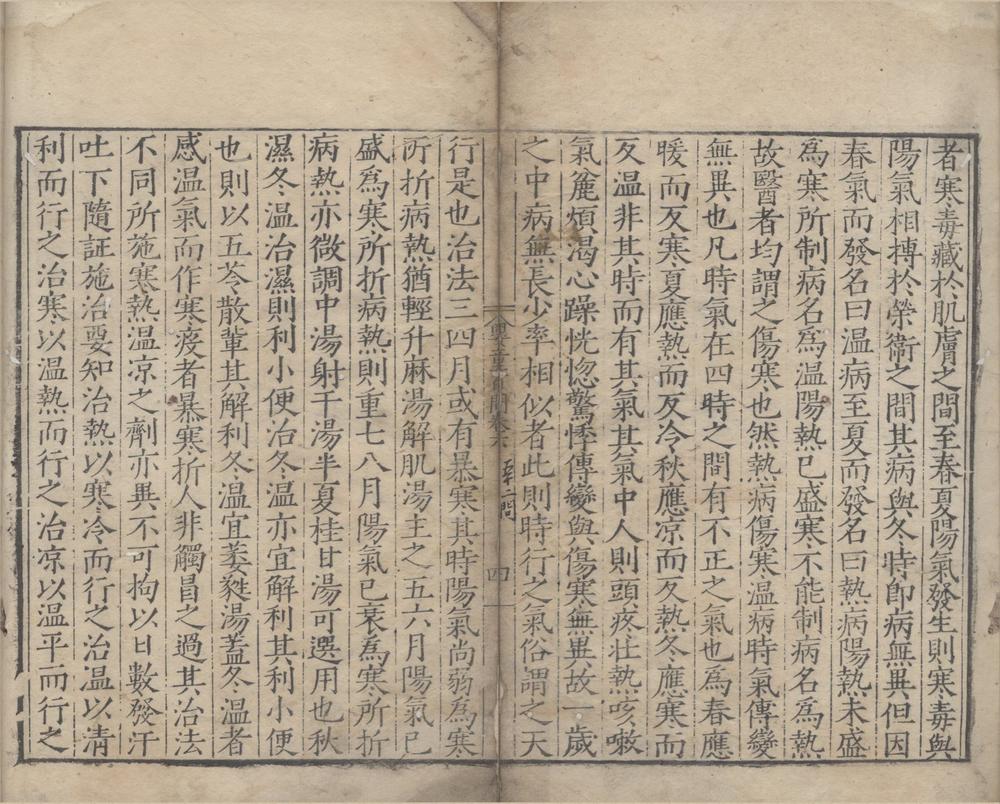 者寒毒藏於肌膚之間至春夏陽氣發生則寒毒與
陽氣相搏於榮衛之間其病與冬時即病無異但因
春氣而發名曰温病至夏而發名曰熱病陽熱未盛
爲寒所制病名爲温陽熱已盛寒不能制病名爲熱
故醫者均謂之傷寒也然熱病傷寒温病時氣傳變
無異也凡時氣在四時之間有不正之氣也爲春應
暖而反寒夏應熱而反冷秋應凉而反熱冬應寒而
反温非其時而有其氣其氣中人則頭疼壮熱咳嗽
氣麄煩渴心躁恍惚驚悸傳變與傷寒無異故一歲
之中病無長少率相似者此則時行之氣俗謂之天
卷六
四
行是也治法三四月或有暴寒其時陽氣尚弱爲寒
所折病熱猶輕升麻湯解肌湯主之五六月陽氣已
盛爲寒所折病熱則重七八月陽氣已衰爲寒所折
病熱亦微調中湯射干湯半夏桂甘湯可選用也秋
濕冬温治濕則利小便治冬温亦宜解利其利小便
也則以五苓散輩其解利冬温宜萎蕤湯蓋冬温者
感温氣而作寒疫者暴寒折人非觸冒之過其治法
不同所施寒熱温凉之劑亦異不可拘以日數發汗
吐下隨証施治要知治熱以寒冷而行之治温以清
利而行之治寒以温熱而行之治凉以温平而行之